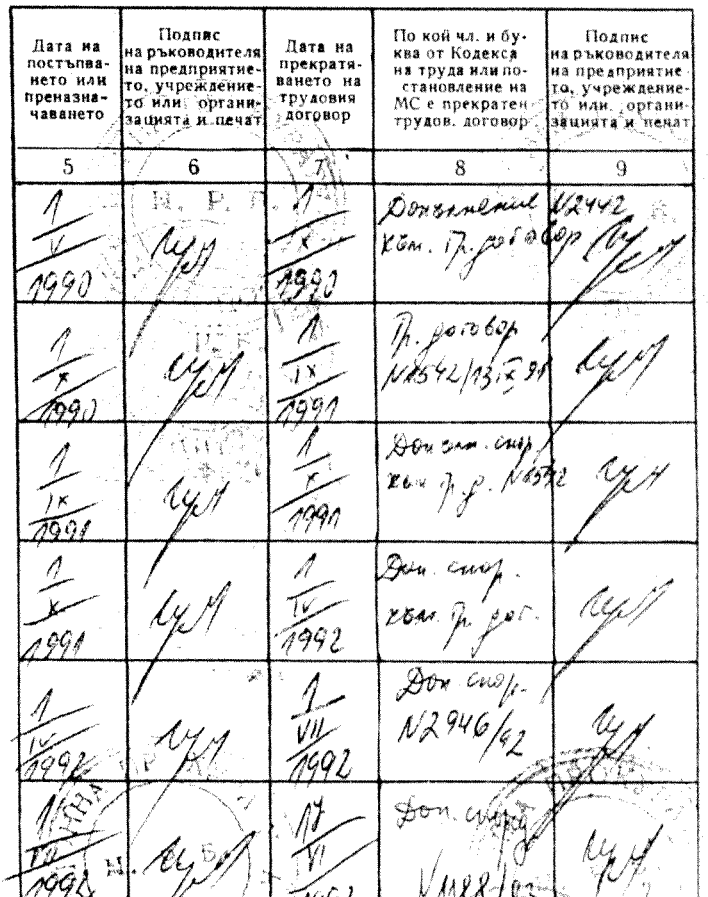 Дата на
постъпва-
нето или
преназна-
чаването
Подпис
на ръководителя
на предприятие-
то, учреждение-
то или органи-
зацията и печат
Дата на
прекратя-
ването на
трудовия
договор
По кой чл. и бу-
ква от Кодекса
на труда или по-
становление на
МС е прекратен
трудов. договор
Подпис
на ръководителя
на предприятие-
то, учреждение-
то или органи-
зацията и печат
5 6 7 8 9
1
V
1990
1
X
1990
Допълнение N2442
към. Тр. договор
1
X
1990
1
IX
1991
Тр. договор
N1542/13 IX 91
1
IX
1991
1
X
1991
Допълн. спор.
към Тр. д. N1542
1
X
1991
1
IV
1992
Доп. спор.
към. Тр. дог.
1
IV
1992
1
VII
1992
Доп. спор.
N2946/92
1
VII
1992
17
VI
Доп. спор.